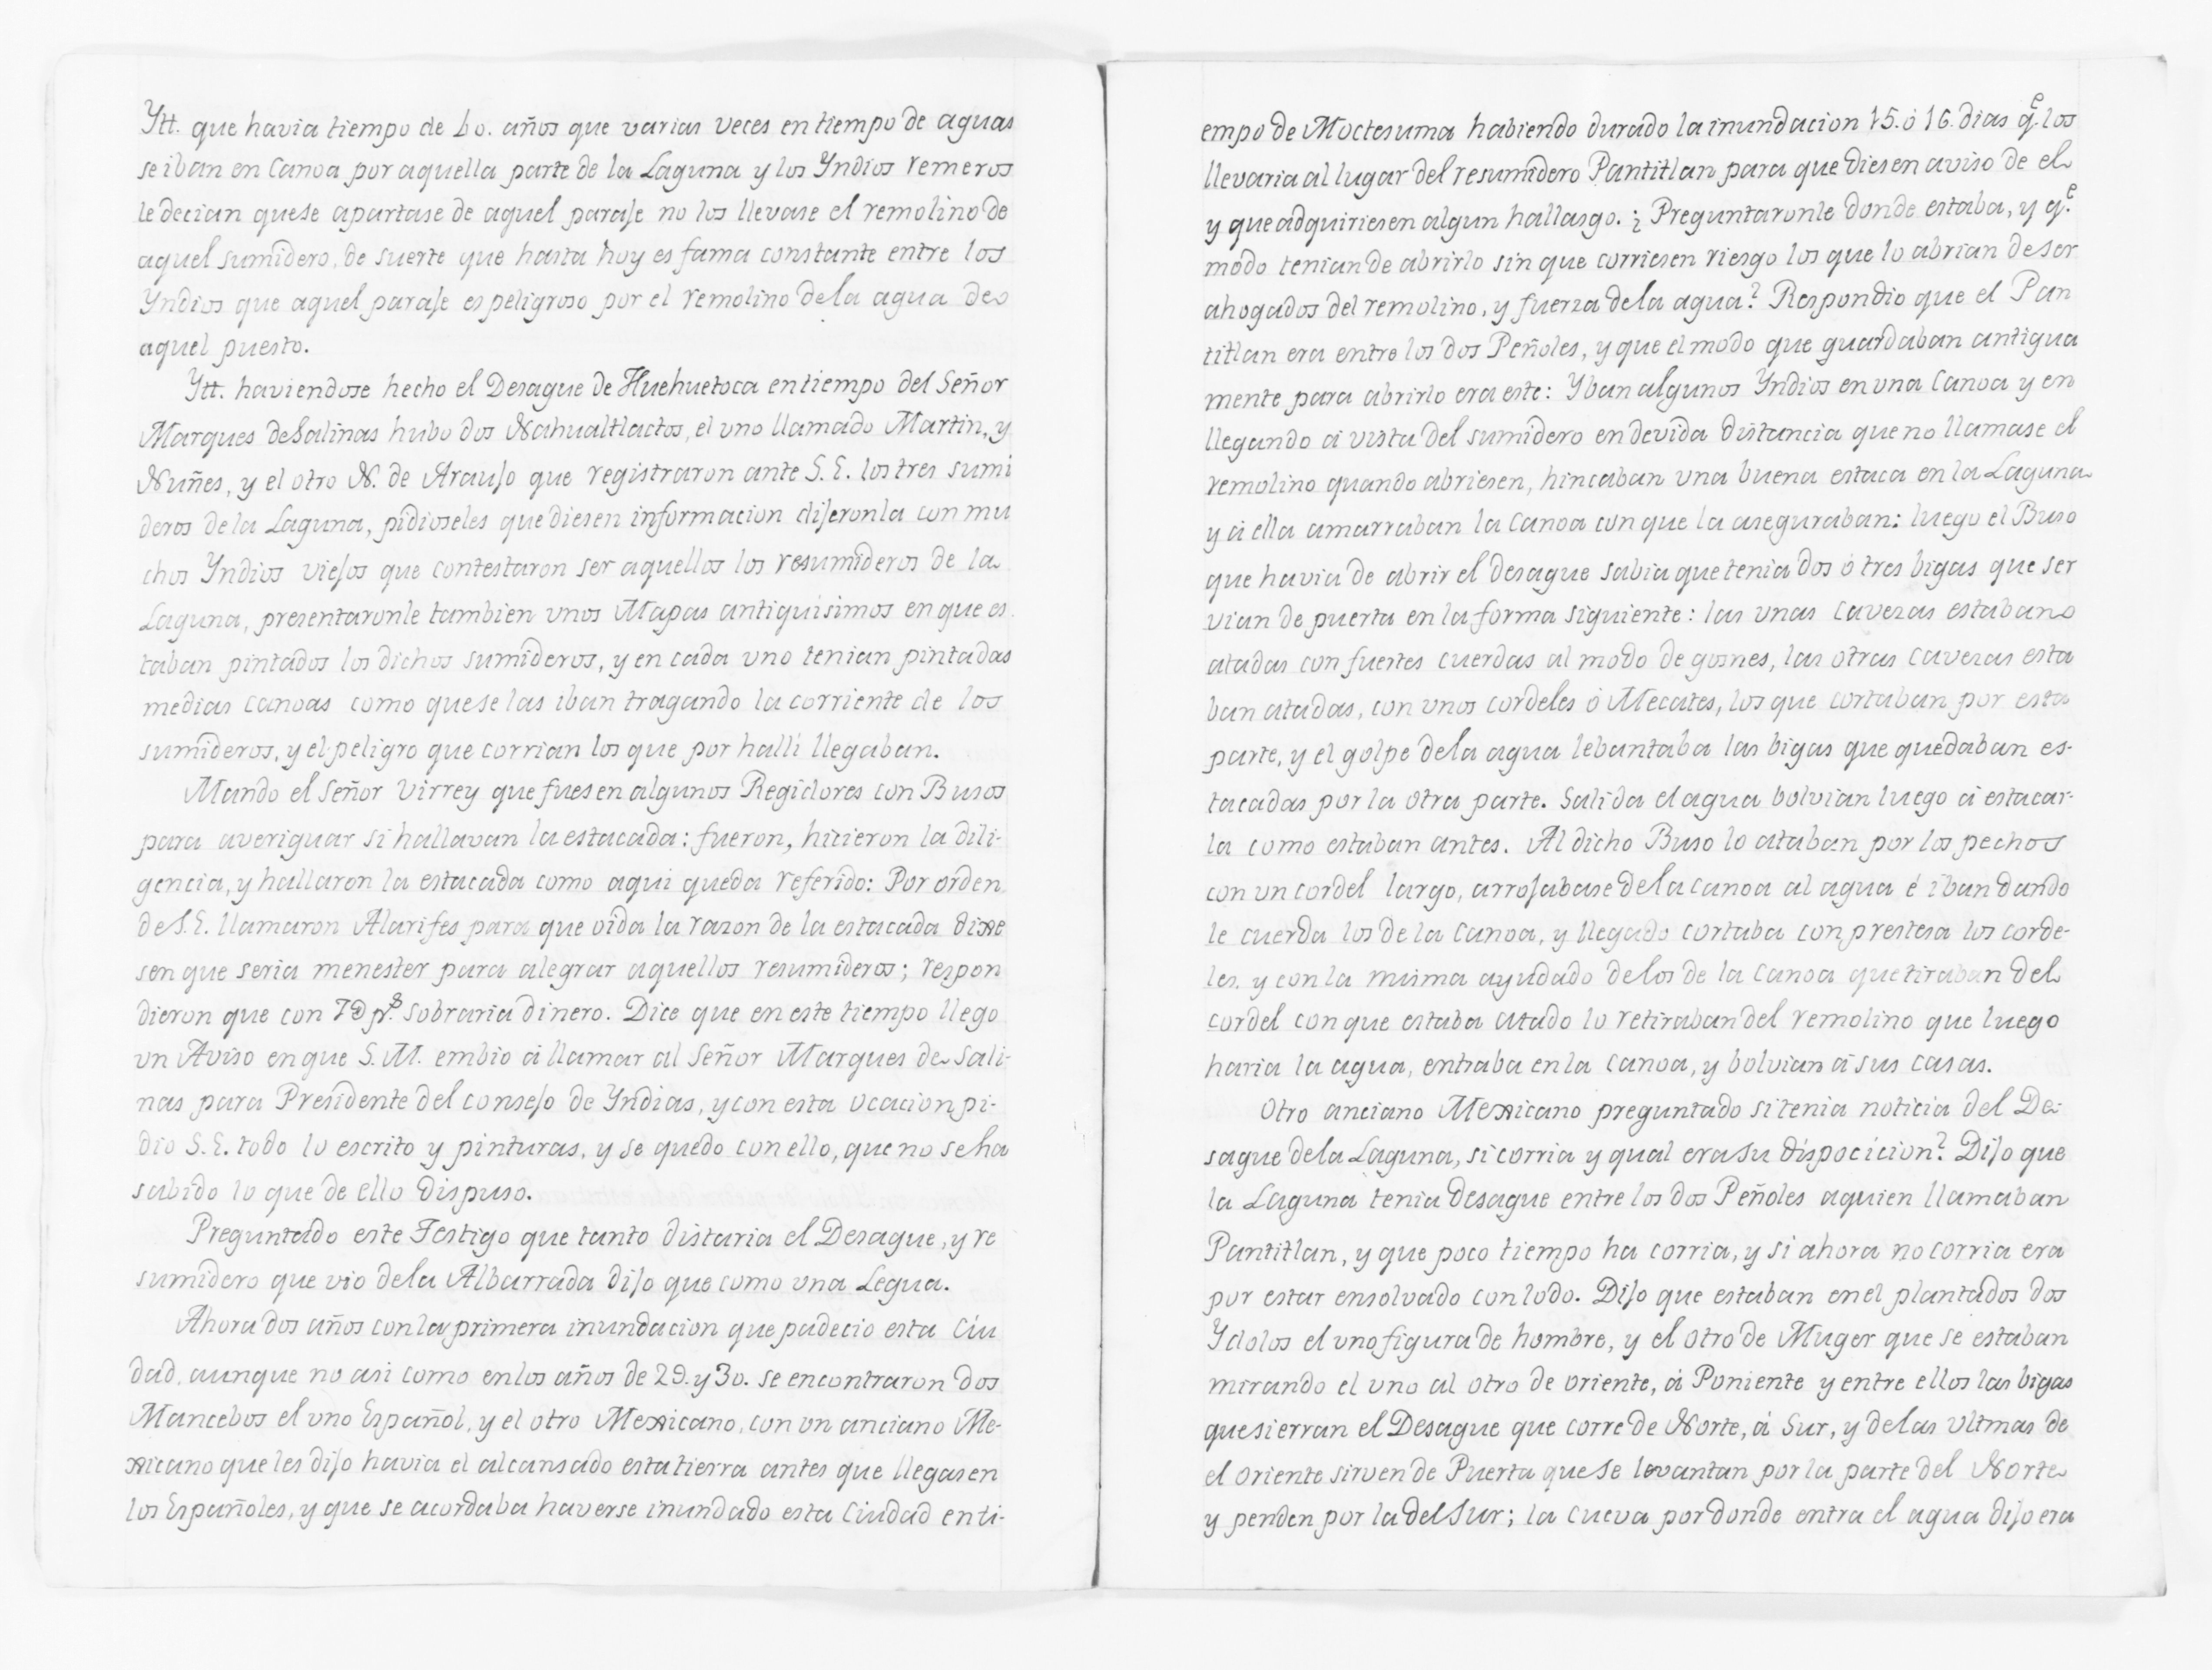 Ytt. que havia tiempo de 60. años que varias veces en tiempo de aguas
se iban en Canoa por aquella parte de la Laguna y los Yndios remeros
le decian quese apartase de aquel paraje no los llevase el remolino de
aquel sumidero, de suerte que hasta hoy es fama constante entre los
Yndios que aquel paraje es peligroso por el remolino dela agua de
aquel puesto.
Ytt. haviendose hecho el Desague de Huehuetoca en tiempo del Señor
Marques de Salinas hubo dos Nahualtlactos, el uno llamado Martin, y
Nuñes, y el otro N. de Araujo que registraron ante S. E. los tres sumi
deros de la Laguna, pidioseles que diesen informacion dijeronla con mu
chos Yndios viejos que contestaron ser aquellos los resumideros de la
Laguna, presentaronle tambien unos Mapas antiquisimos en que es
taban pintados los dichos sumideros, y en cada uno tenian pintadas
medias canoas como que se las iban tragando la corriente de los
sumideros, y el peligro que corrian los que por halli llegaban.
Mando el Señor Virrey que fuesen algunos Regidores con Busos
para averiguar si hallavan la estacada: fueron, hicieron la dili-
gencia, y hallaron la estacada como aqui queda referido: Por orden
de S. E. llamaron Alarifes para que oida la razon de la estacada dixe
sen que seria menester para alegrar aquellos resumideros; respon
dieron que con 7@ p.s sobraria dinero. Dice que en este tiempo llego
un Aviso en que S. M. embio á llamar al Señor Marques de Sali-
nas para Presidente del consejo de Yndias, y con esta ocacion pi-
dio S. E. todo lo escrito y pinturas, y se quedo con ello, que no se ha
sabido lo que de ello dispuso.
Preguntado este Testigo que tanto distaria el Desague, y re
sumidero que vio dela Albarrada dijo que como una Legua.
Ahora dos años con la primera inundacion que padecio esta Ciu
dad, aunque no asi como en los años de 29. y 30. se encontraron dos
Mancebos el uno Español, y el otro Mexicano, con un anciano Me-
xicano que les dijo havia el alcansado esta tierra antes que llegasen
los Españoles, y que se acordaba haverse inundado esta Ciudad en ti-
empo de Moctesuma habiendo durado la inundacion 15. ó 16. dias q.e los
llevaria al lugar del resumidero Pantitlan para que diesen aviso de el
y que adquiriesen algun hallasgo. ¿ Preguntaronle donde estaba, y q.e
modo tenian de abrirlo sin que corriesen riesgo los que lo abrian de ser
ahogados del remolino, y fuerza dela agua? Respondio que el Pan
titlan era entre los dos Peñoles, y que el modo que guardaban antigua
mente para abrirlo era este: Yban algunos Yndios en una Canoa y en
llegando á vista del sumidero en devida distancia que no llamase el
remolino quando abriesen, hincaban una buena estaca en la Laguna
y á ella amarraban la Canoa con que la aseguraban: luego el Buso
que havia de abrir el desague sabia que tenia dos ó tres bigas que ser
vian de puerta en la forma siguiente: las unas cavezas estaban
atadas con fuertes cuerdas al modo de gosnes, las otras cavezas esta
ban atadas, con unos cordeles ó Mecates, los que cortaban por esta
parte, y el golpe dela agua lebantaba las bigas que quedaban es-
tacadas por la otra parte. Salida el agua bolvian luego á estacar-
la como estaban antes. Al dicho Buso lo ataban por los pechos
con un cordel largo, arrojabase de la canoa al agua é iban dando
le cuerda los de la Canoa, y llegado cortaba con prestesa los corde-
les, y con la misma ayudado delos de la Canoa que tiraban del
cordel con que estaba atado lo retiraban del remolino que luego
haria la agua, entraba en la Canoa, y bolvian á sus casas.
Otro anciano Mexicano preguntado si tenia noticia del De-
sague dela Laguna, si corria y qual era su dispocicion? Dijo que
la Laguna tenia desague entre los dos Peñoles aquien llamaban
Pantitlan, y que poco tiempo ha corria, y si ahora no corria era
por estar ensolvado con lodo. Dijo que estaban en el plantados dos
Ydolos el uno figura de hombre, y el otro de Muger que se estaban
mirando el uno al otro de oriente, á Poniente y entre ellos las bigas
que sierran el Desague que corre de Norte, á Sur, y de las ultmas de
el oriente sirven de Puerta que se levantan por la parte del Norte
y penden por la del Sur; la cueva por donde entra el agua dijo era